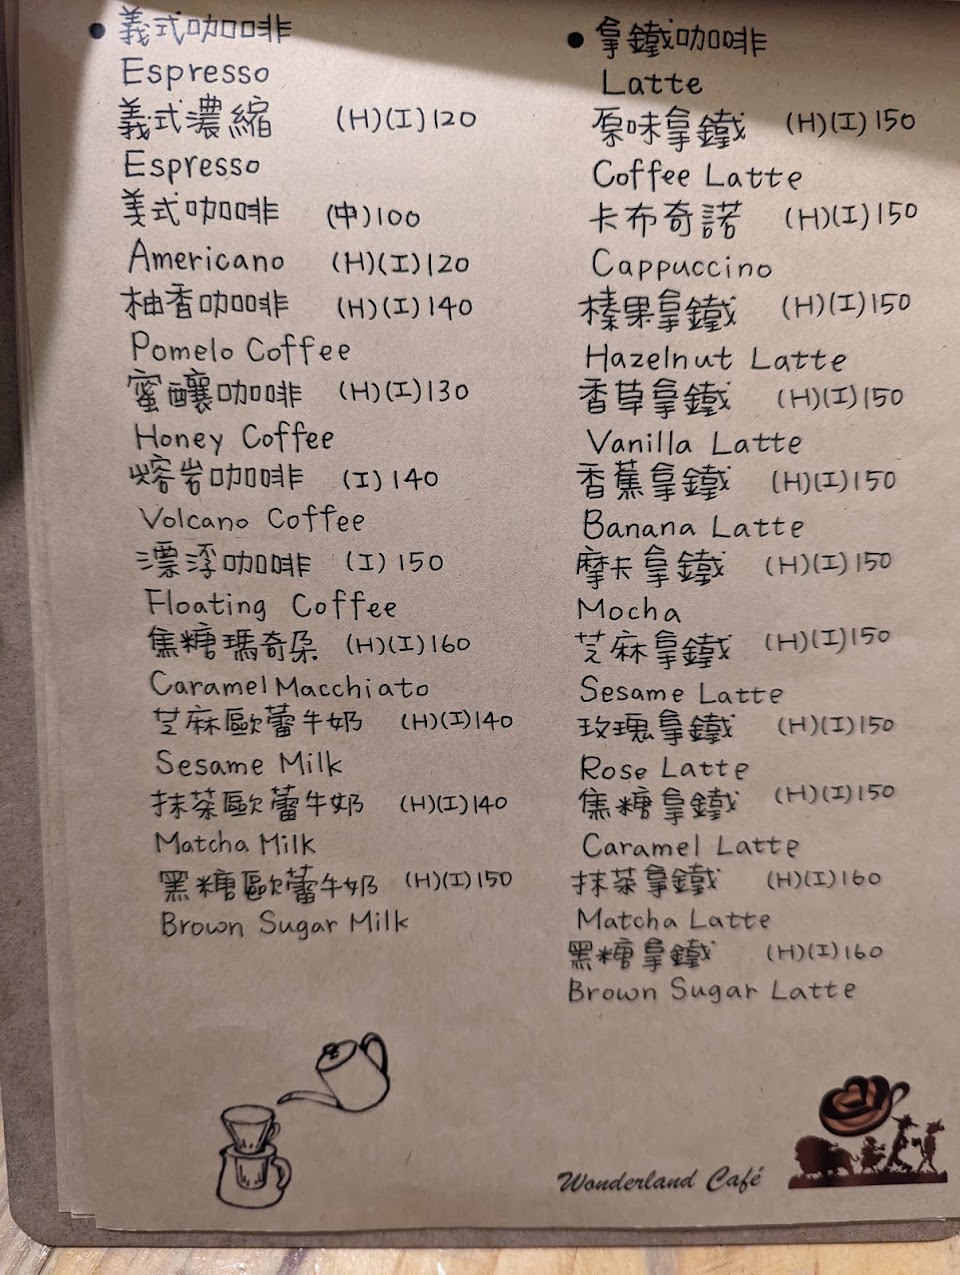 • 義式咖啡
Espresso
義式濃縮 (H)(I)120
Espresso
義式咖啡 (中)100
Americano (H)(I)120
柚香咖啡 (H)(I)140
Pomelo Coffee
蜜釀咖啡 (H)(I)130
Honey Coffee
熔岩咖啡 (I)140
Volcano Coffee
漂浮咖啡 (I)150
Floating Coffee
焦糖瑪奇朵 (H)(I)160
Caramel Macchiato
芝麻歐蕾牛奶 (H)(I)140
Sesame Milk
抹茶歐蕾牛奶 (H)(I)140
Matcha Milk
黑糖歐蕾牛奶 (H)(I)150
Brown Sugar Milk
• 拿鐵咖啡
Latte
原味拿鐵 (H)(I)150
Coffee Latte
卡布奇諾 (H)(I)150
Cappuccino
榛果拿鐵 (H)(I)150
Hazelnut Latte
香草拿鐵 (H)(I)150
Vanilla Latte
香蕉拿鐵 (H)(I)150
Banana Latte
摩卡拿鐵 (H)(I)150
Mocha
芝麻拿鐵 (H)(I)150
Sesame Latte
玫瑰拿鐵 (H)(I)150
Rose Latte
焦糖拿鐵 (H)(I)150
Caramel Latte
抹茶拿鐵 (H)(I)160
Matcha Latte
黑糖拿鐵 (H)(I)160
Brown Sugar Latte
Wonderland Café